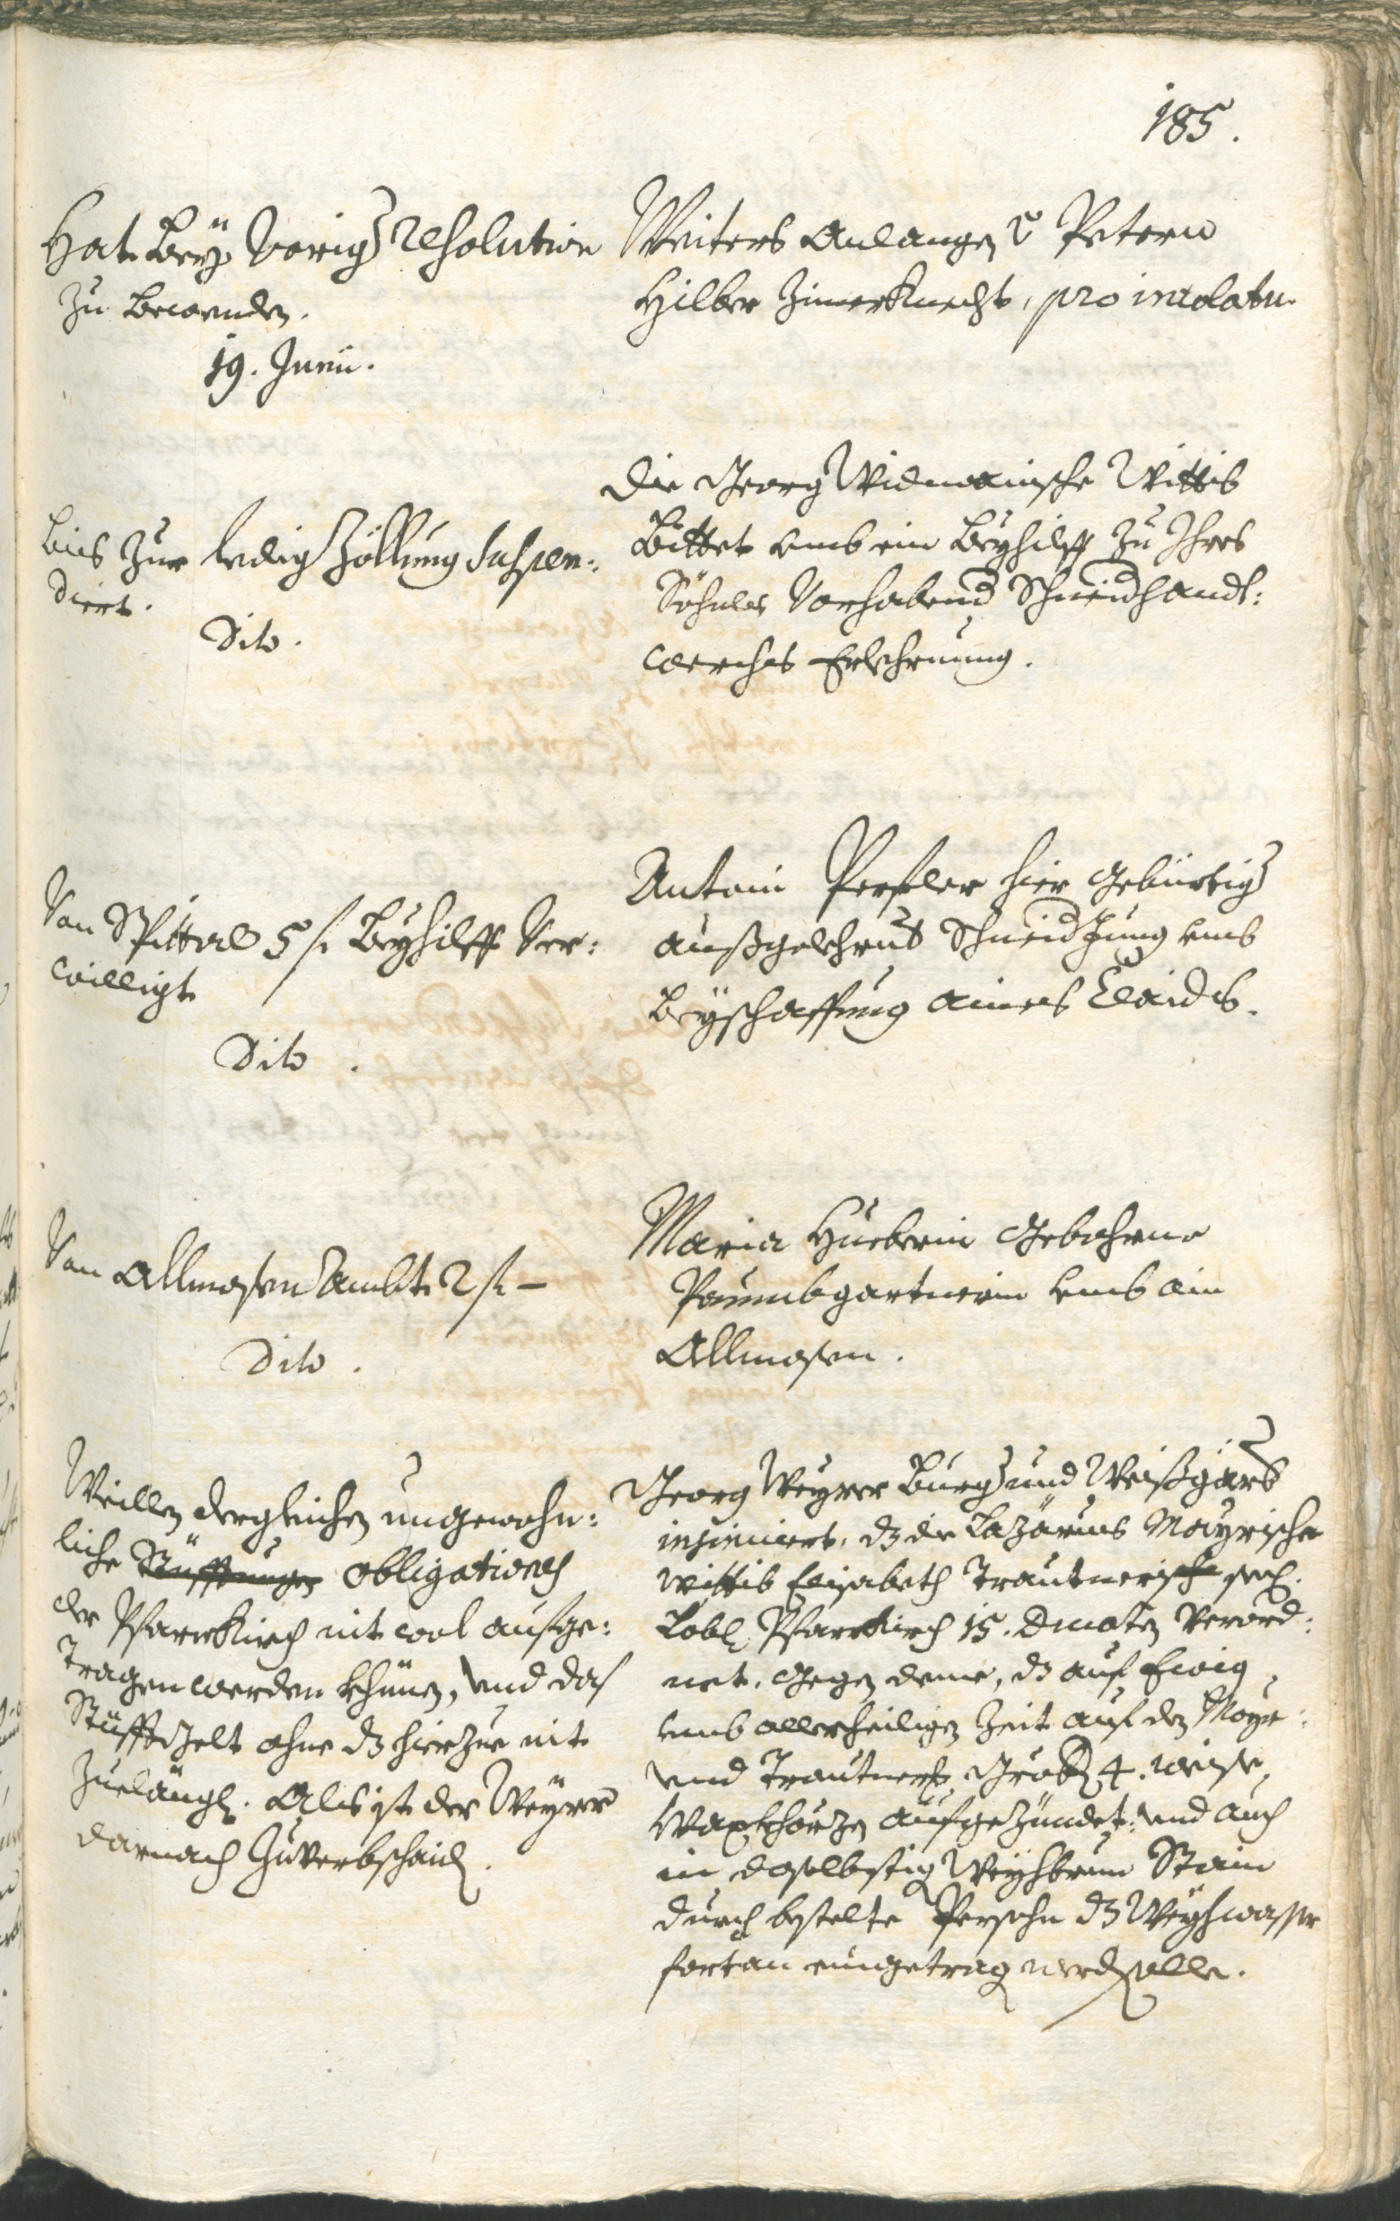 185.
Hat bey voriger Resolution
zu bewenden.
19. Junii.
Weiters Anlangen Petern
Hilber Zimerknecht, pro incolatu.
Bis zur ledig Zöllung suspen:
diert.
Dito.
Die Georg Widmanische Wittib
bittet umb ein Beyhilff zu Ihres
Söhnles vorhabend Schneidhandt:
werches Erlehrnung.
Von Spittal 5 f. Beyhilff ver:
willigt
Dito.
Antoni Perstler hier gebürtiger
außgelehrnt Schneid Jung umb
Beyschaffung aines Claidts.
Von Allmosen Ambt 2 f. –
Dito.
Maria Hueberin gebohrne
Paumbgartnerin umb ain
Allmosen.
Weillen dergleichen ungewohn:
liche Stüfftungen obligationes
der Pfarrkirch nit wol aufge:
tragen werden khönen, und das
Stüfftgelt ohne dz hierzue nit
zuelängl. Als ist der Weyrer
darnach zuverbschaid.
Georg Weyrer Burger und Weißgärber
insinuiert, dz die Lazarus Mayrische
Wittib Elisabeth Trautnerische
Löbl. Pfarrkirch 15. Ducaten verord:
net. Gegen deme, dz auf Ewig
umb allerheiligen Zeit auf den Mayr:
und Trautners. Grab 4. weise
Waxkhörzen aufgezündet: und auch
in daselbstig Weyhbrun Stain
durch bestelte Persohn dz Weyhwasser
fortan eingetragen werden solle.